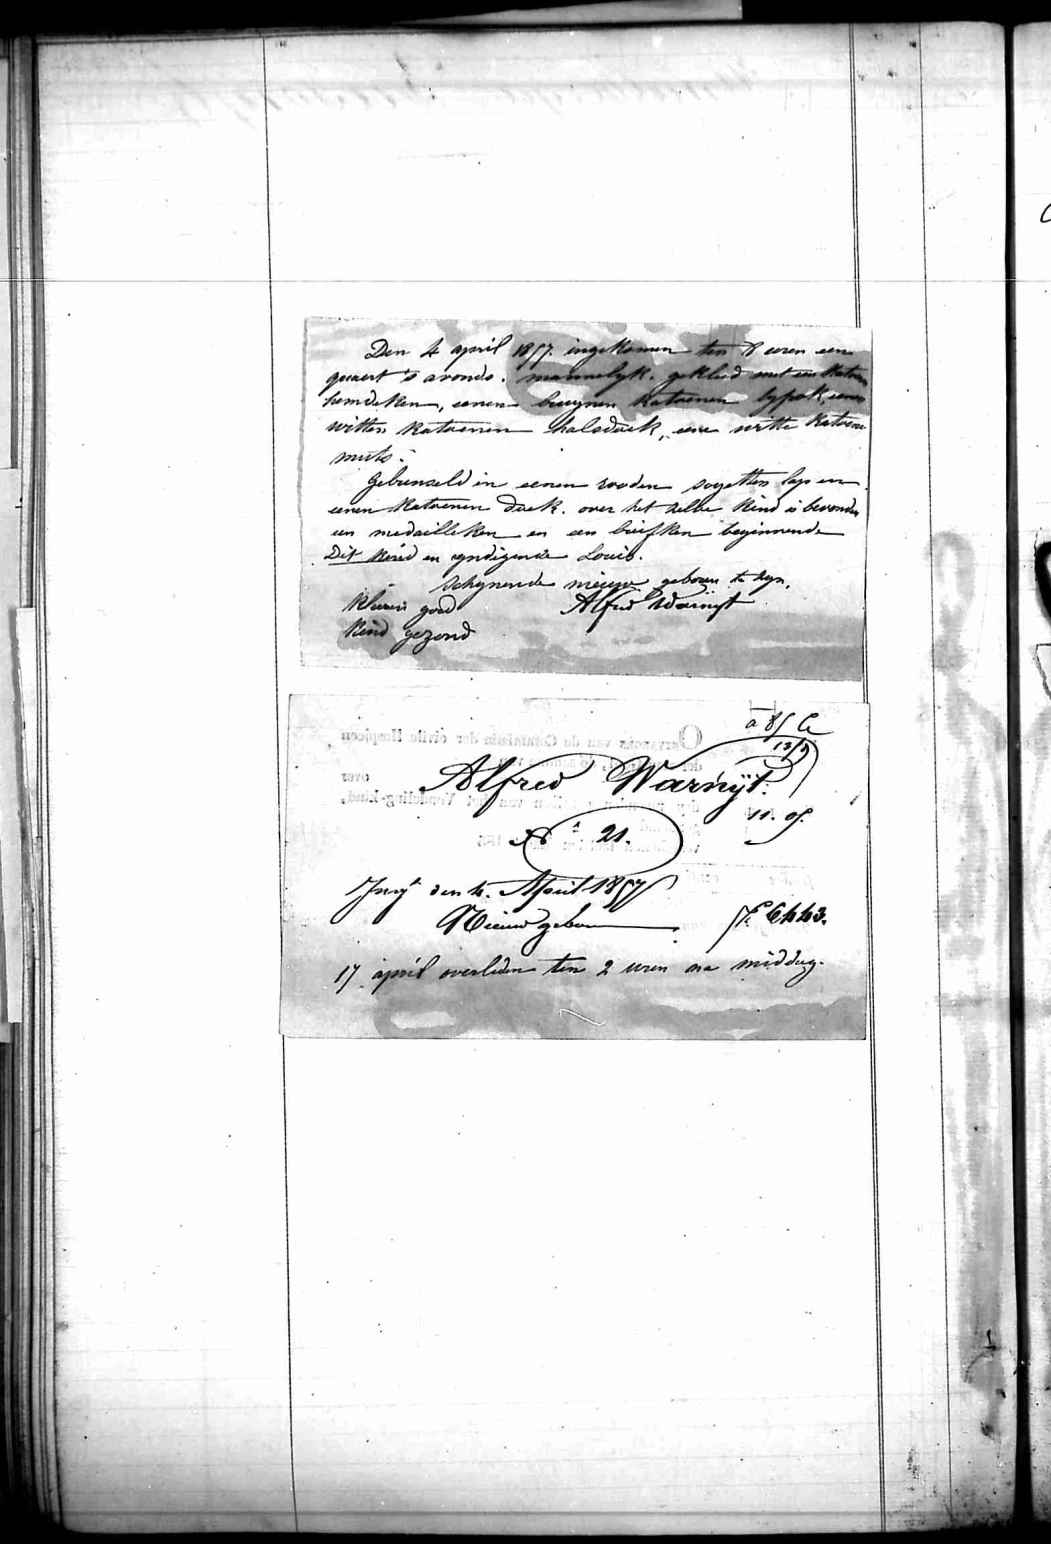 Den 4 april 1857. ingekomen ten 8 uren een
quaert s avonds. mannelyk. gekleed met een katoen
hemdeken, eenen bruynen katoenen lypok, eenen
witten katoenen halsdoek, eene witte katoene
muts.
Gebunseld in eenen rooden sayetten lap en
eenen katoenen doek. over het zelve kind is bevonden
een medailleken en een briefken beginnende
Dit kind en eyndigende Louis.
Schynende nieuw geboren te zyn.
kleeren goed
Alfred Warnyt
kind gezond
a 85 C
Alfred Warnÿt.
11. 05.
N° 21.
Ingt den 4. April 1857
Nieuwgeboren
F° 6443.
17 april overleden ten 2 uren na middag.